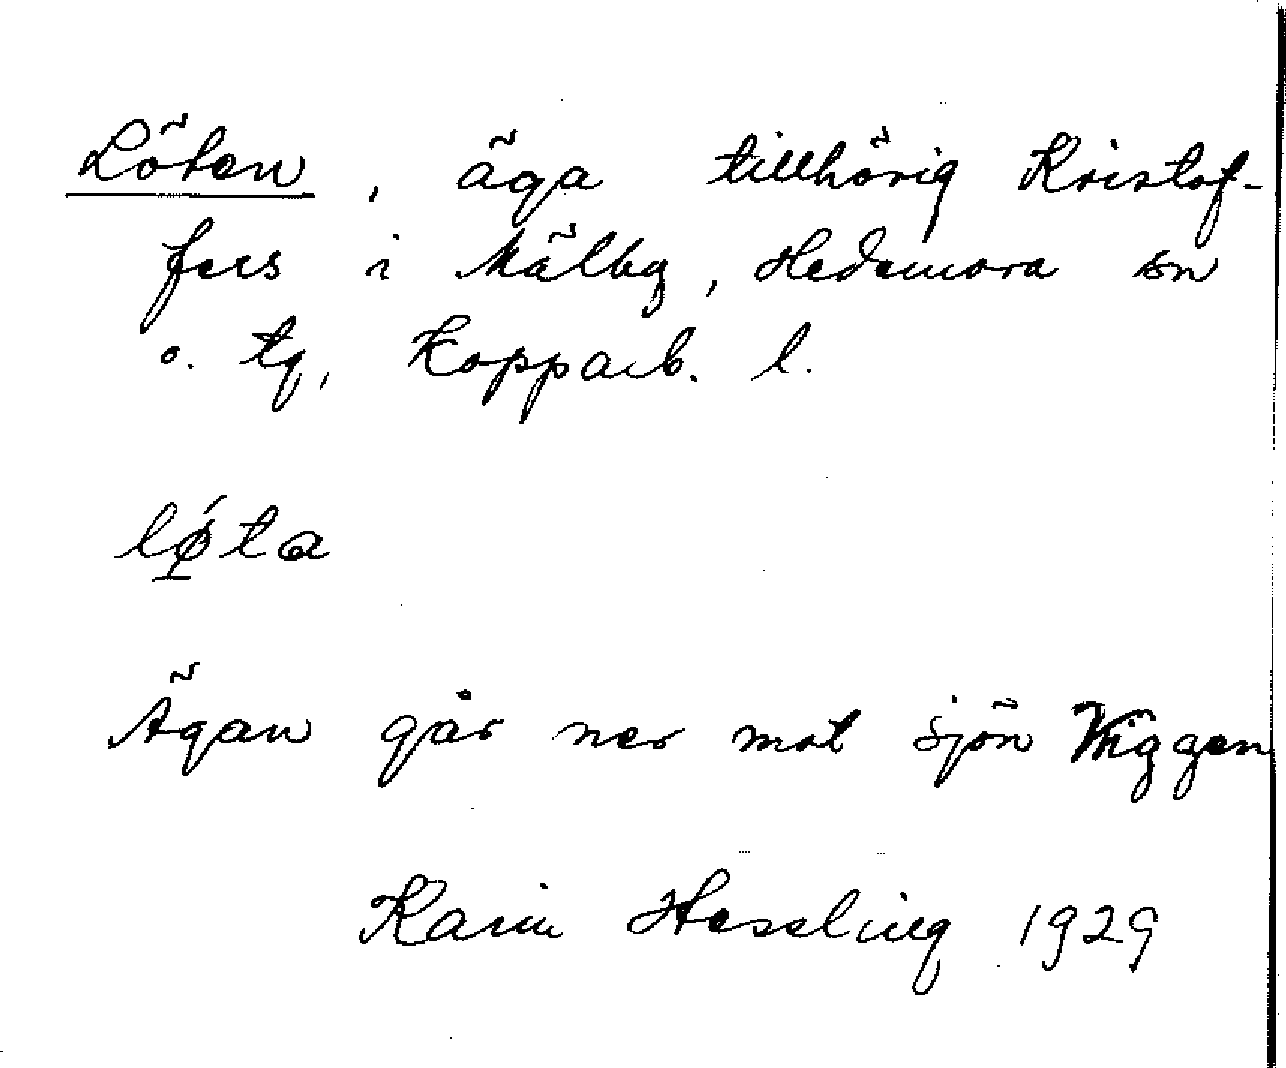 Löten, äga tillhörig Kristof-
fers i Mälby, Hedemora sn
o. tg, Kopparb. l.
lǿ̱ta
Ägan går ner mot sjön Viggen
Karin Hesseling 1929